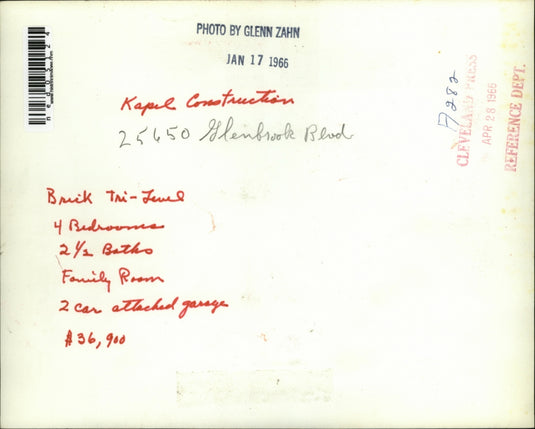 PHOTO BY GLENN ZAHN
JAN 17 1966
Kapel Construction
25650 Glenbrook Blvd
Brick Tri-Level
4 Bedrooms
2 1/2 Baths
Family Room
2 car attached garage
$36,900
CLEVELAND PRESS
APR 28 1966
REFERENCE DEPT.